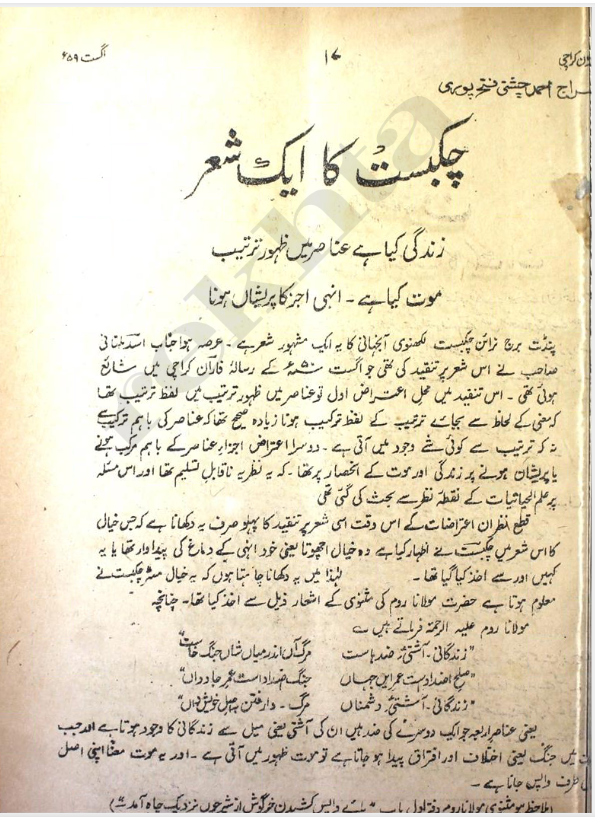 اگست ۵۹ء ۱۷ کراچی
احمد چشتی فتح پوری
چکبستؔ کا ایک شعر
زندگی کیا ہے عناصر میں ظہور ترتیب
موت کیا ہے ۔ انہی اجزا کا پریشاں ہونا
پنڈت برج نرائن چکبست لکھنوی آنجہانی کا یہ ایک مشہور شعر ہے ۔ عرصہ ہوا جناب اسد ملتانی
صاحب نے اس شعر پر تنقید کی تھی جو اگست کے رسالہ فاران کراچی میں شائع
ہوئی تھی ۔ اس تنقید میں محل اعتراض اول تو عناصر میں ظہور ترتیب میں لفظ ترتیب تھا
کہ معنی کے لحاظ سے بجائے ترتیب کے لفظ ترکیب ہونا زیادہ صحیح تھا کہ عناصر کی باہم ترکیب سے
نہ کہ ترتیب سے کوئی شے وجود میں آتی ہے ۔ دوسرا اعتراض اجزاء عناصر کے باہم مرکب ہونے
یا پریشان ہونے پر زندگی اور موت کے انحصار پر تھا ۔ کہ یہ نظریہ ناقابل تسلیم تھا اور اس مسئلہ
پر علم الحیاتیات کے نقطۂ نظر سے بحث کی گئی تھی
قطع نظر ان اعتراضات کے اس وقت اسی شعر پر تنقید کا پہلو صرف یہ دکھانا ہے کہ جس خیال
کا اس شعر میں چکبست نے اظہار کیا ہے وہ خیال اچھوتا یعنی خود انہی کے دماغ کی پیداوار تھا یا یہ
کہیں اور سے اخذ کیا گیا تھا ۔ لہٰذا میں یہ دکھانا چاہتا ہوں کہ یہ خیال مسٹر چکبست نے
معلوم ہوتا ہے حضرت مولانا روم کی مثنوی کے اشعار ذیل سے اخذ کیا تھا ۔ چنانچہ
مولانا روم علیہ الرحمۃ فرماتے ہیں ؎
"زندگانی ۔ آشتیٔ ضدہاست مرگ آں اندر میاں شاں جنگ خاست"
"صلح اضداد ست عمر ایں جہاں جنگ اضداد است عمر جاوداں"
"زندگانی ۔ آشتیٔ دشمناں مرگ ۔ وا رفتن باصل خویش داں"
یعنی عناصر اربعہ جو ایک دوسرے کی ضد ہیں ان کی آشتی یعنی میل سے زندگانی کا وجود ہوتا ہے اور جب
میں جنگ یعنی اختلاف اور افتراق پیدا ہو جاتا ہے تو موت ظہور میں آتی ہے ۔ اور یہ موت معنا اپنی اصل
طرف واپس جانا ہے ۔
(ملاحظہ ہو مثنوی مولانا روم دفتر اول باب "پائے واپس کشیدن خرگوش از شیر چوں نزدیک چاہ آمد")
rekhta